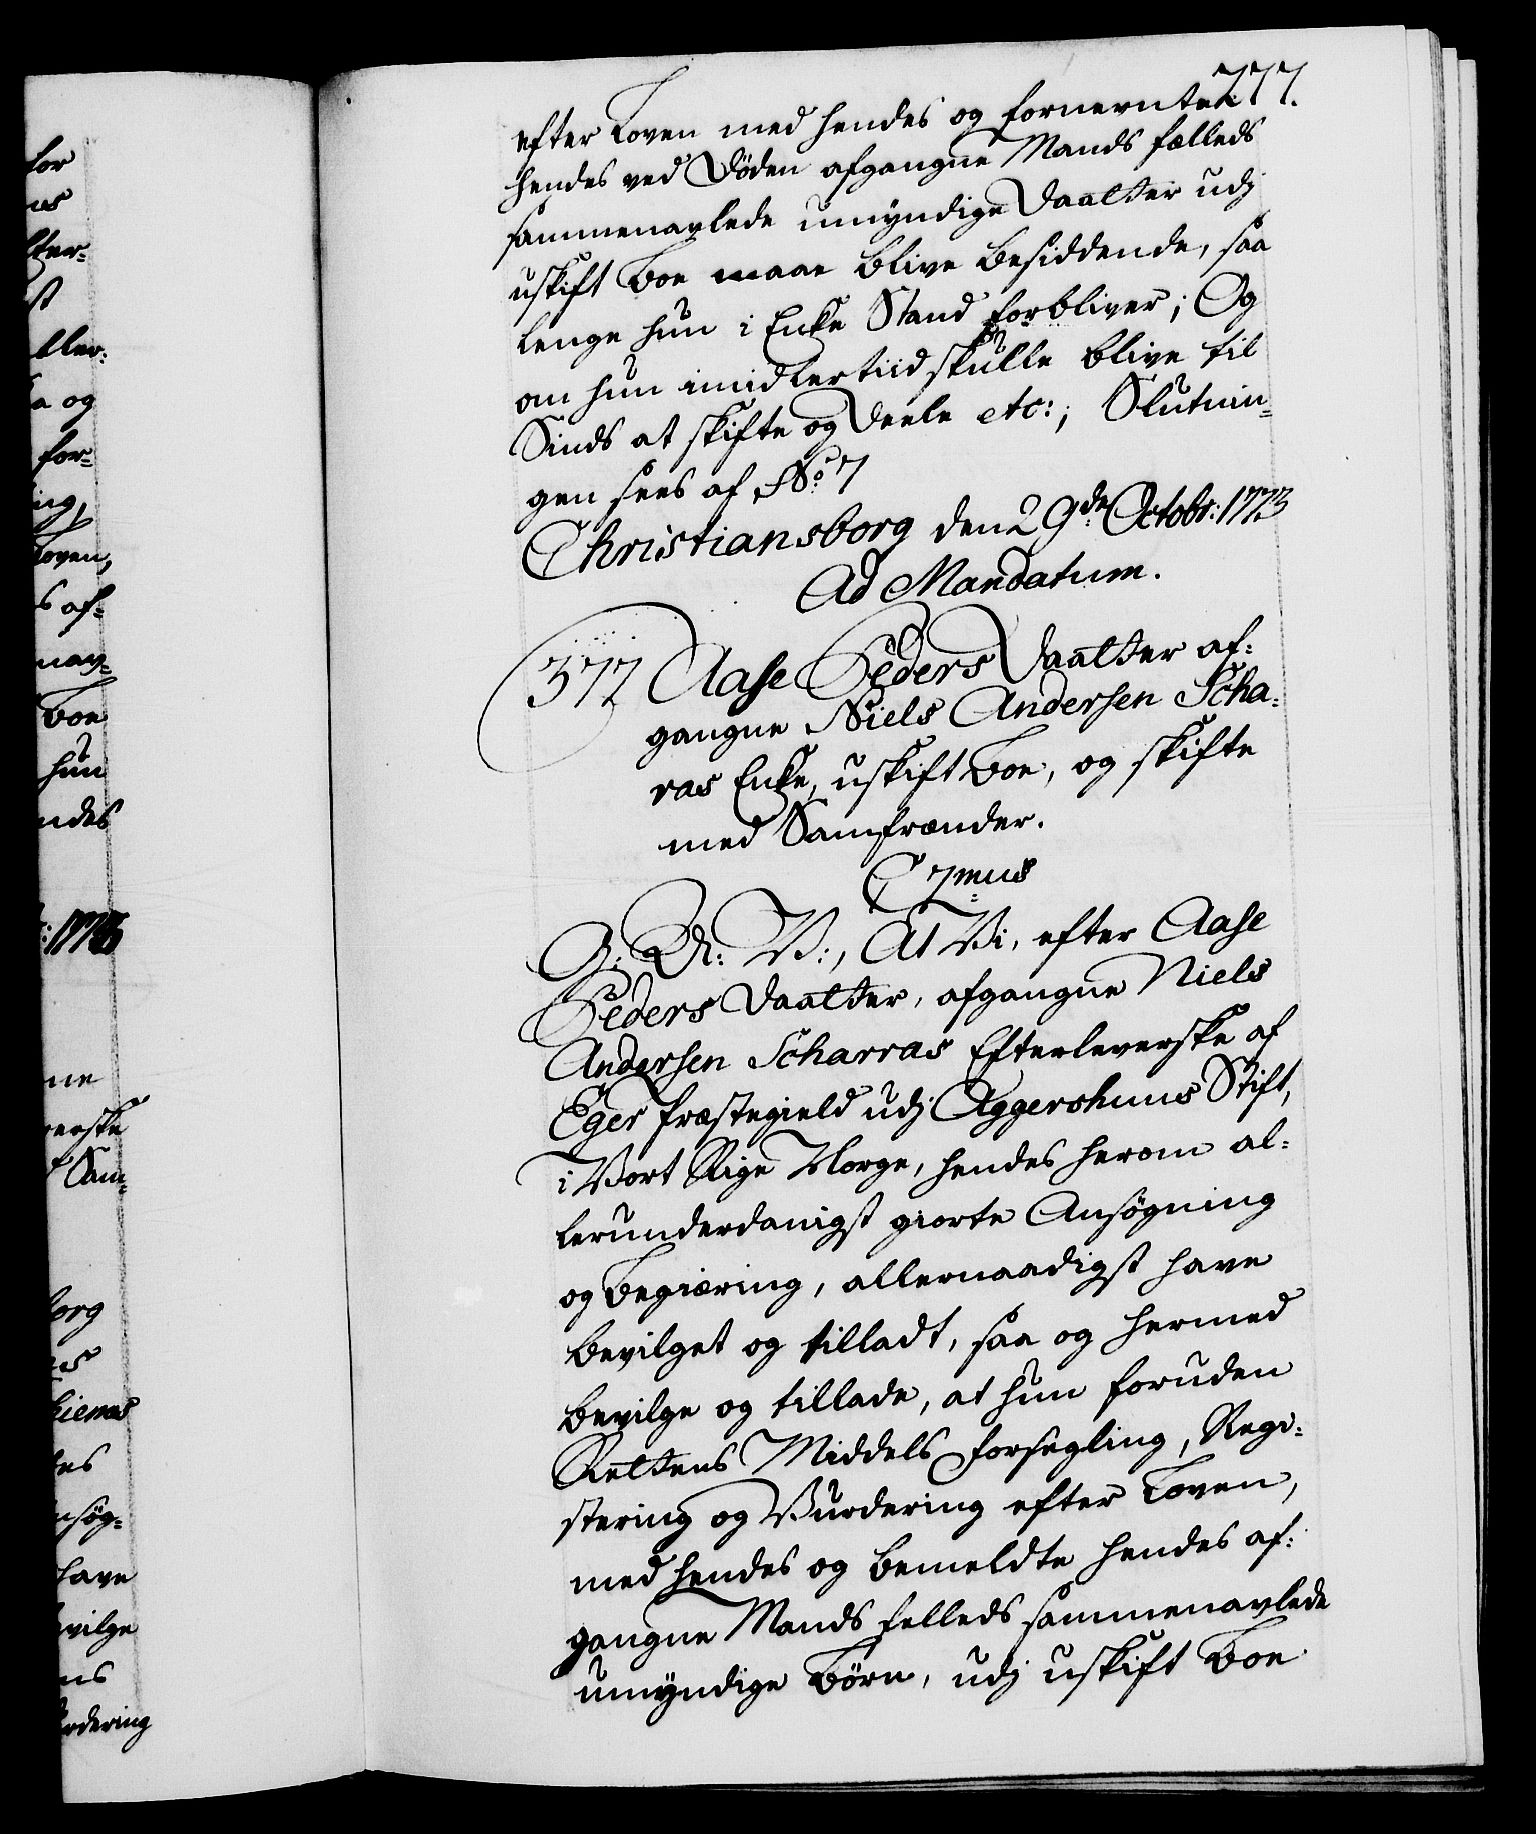 777.
efter Loven med hendes og fornevnte
hendes ved Døden afgangne Mands fælleds
sammenavlede umyndige Daatter udj
uskift Boe maae blive besiddende, saa
lenge hun i Enke Stand forbliver; Og
om hun imidlertiid skulle blive til
Sinds at skifte og deele etc:, Slutnin-
gen sees af No 7
Christiansborg den 29de Octobr: 1773
Ad Mandatum.
377 Aase Peders Daatter af-
gangne Niels Andersen Scha-
ras Enke, uskift Boe, og skifte
med Samfrænder.
C 7mus
G: A: V:, At Vi, efter Aase
Peders Daatter, afgangne Niels
Andersen Scharras Efterleverske af
Eger Præstegield udj Aggershuus Stift,
i Vort Rige Norge, hendes herom al-
lerunderdanigst giorte Ansøgning
og Begiæring, allernaadigst have
bevilget og tilladt, saa og hermed
bevilge og tillade, at hun foruden
Rettens Middels Forsegling, Regi-
stering og Vurdering efter Loven,
med hendes og bemeldte hendes af-
gangne Mands felleds sammenavlede
umyndige Børn, udj uskift Boe